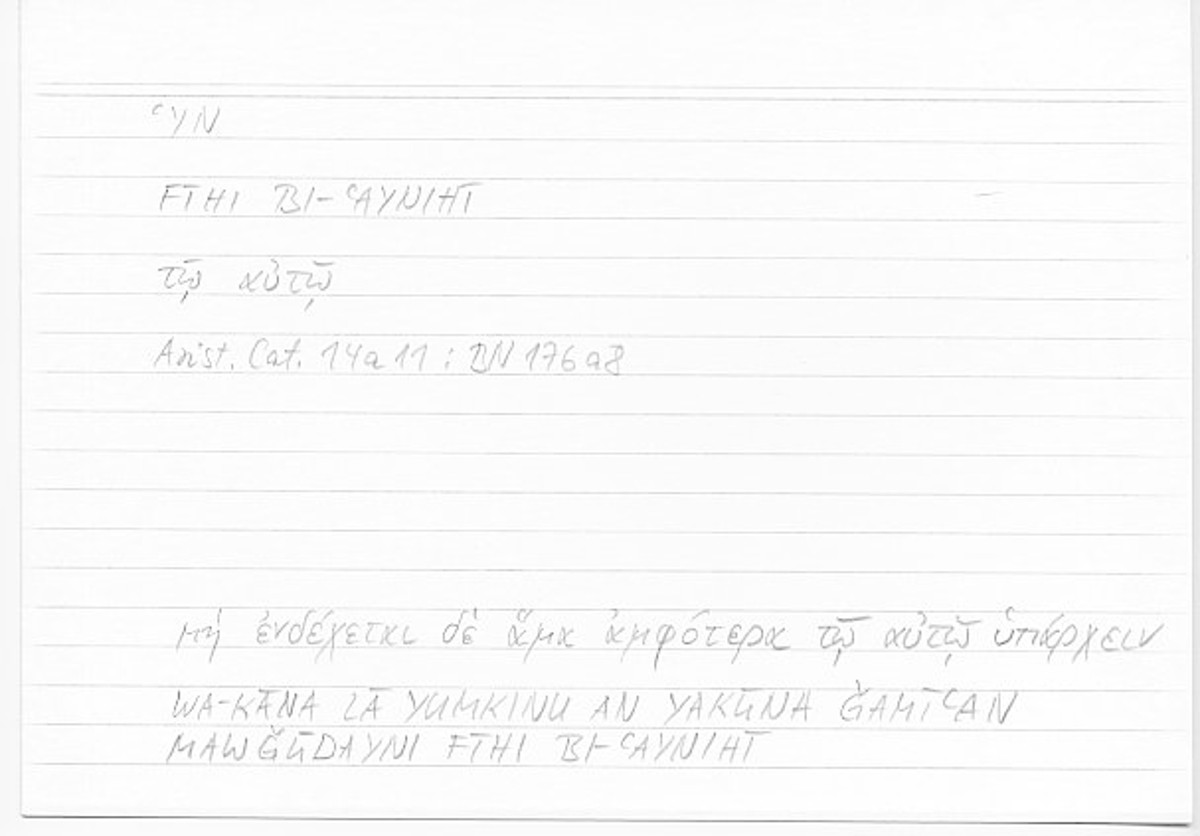 ʿYN
FĪHI BI-ʿAYNIHĪ
τῷ αὐτῷ
Arist. Cat. 14a11 : BN 176a8
μὴ ἐνδέχεται δὲ ἅμα ἀμφότερα τῷ αὐτῷ ὑπάρχειν
WA-KĀNA LĀ YUMKINU AN YAKŪNA ǦAMĪʿAN
MAWǦŪDAYNI FĪHI BI-ʿAYNIHĪ